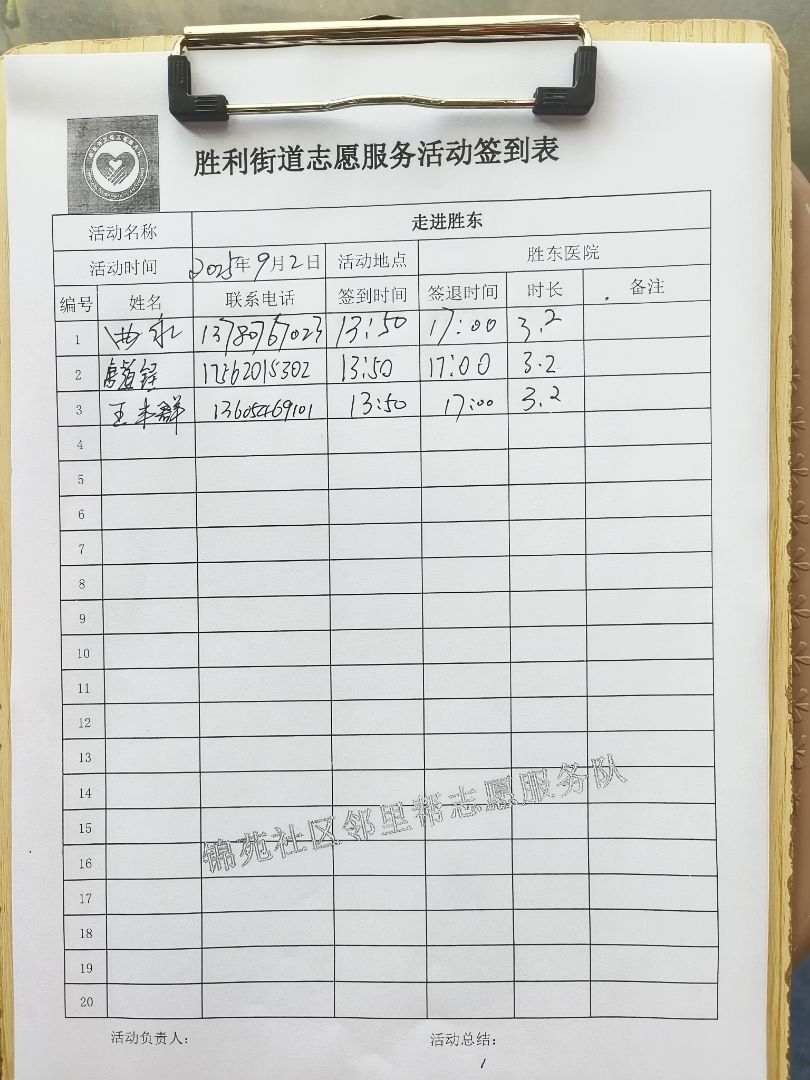 胜利街道志愿服务活动签到表
活动名称 走进胜东
活动时间 2025年9月2日 活动地点 胜东医院
编号 姓名 联系电话 签到时间 签退时间 时长 备注
1 曲永 13780767023 13:50 17:00 3.2
2 17562015302 13:50 17:00 3.2
3 王来群 13605469101 13:50 17:00 3.2
4
5
6
7
8
9
10
11
12
13
14
15
16
17
18
19
20
锦苑社区邻里帮志愿服务队
活动负责人: 活动总结: